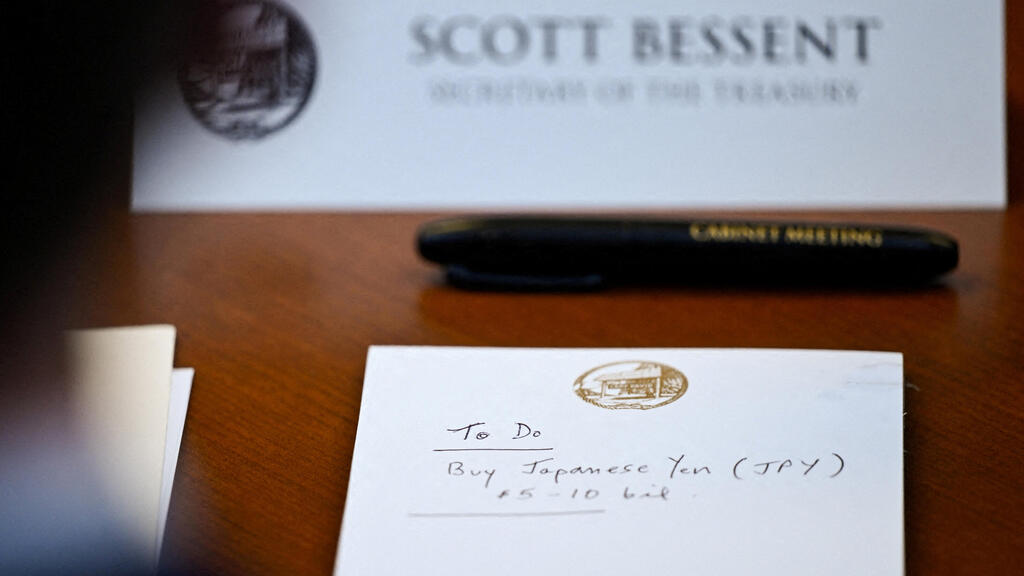 SCOTT BESSENT
SECRETARY OF THE TREASURY
CABINET MEETING
To Do
Buy Japanese Yen (JPY)
$5-10 bil